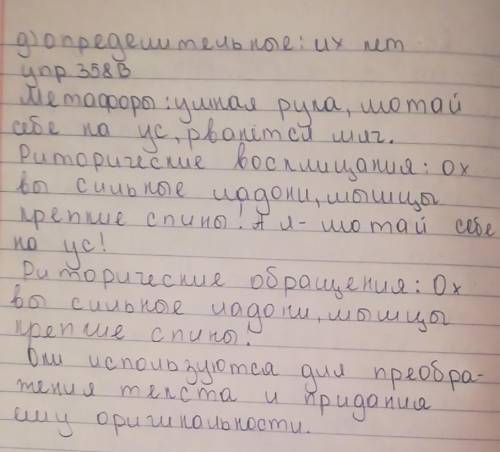 д) определительные: их нет
упр 358В
Метафоры: умная рука, мотай
себе на ус, рванётся миг.
Риторические восклицания: ох
вы сильные ладони, мышцы
крепкие спины! А я- мотай себе
на ус!
Риторические обращения: Ох
вы сильные ладони, мышцы
крепкие спины!
Они используются для преобра-
жения текста и придания
ему оригинальности.